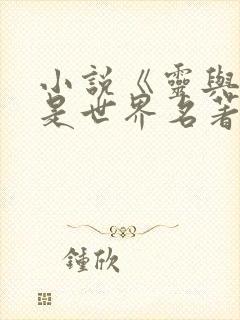 小說《靈與
是世界名著
鍾欣